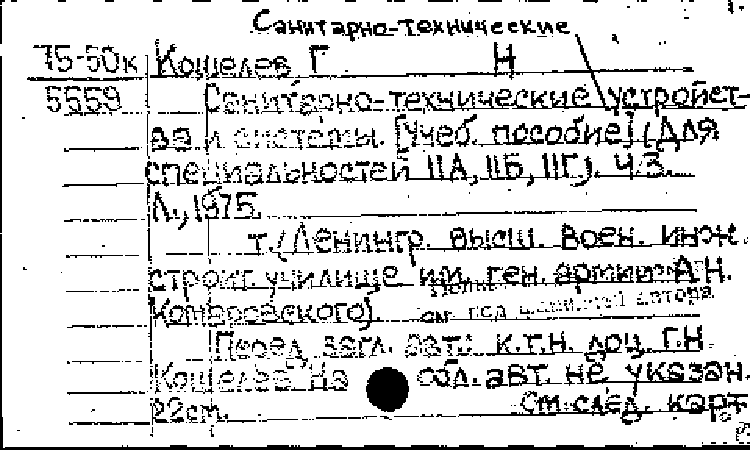 Санитарно-технические
75-50к Кошелев Г Н
5559 Санитарно-технические устройст-
ва и системы. [Учеб. пособие] (Для
специальностей IIА, IIБ, IIГ). Ч.3.
Л., 1975.
т. (Ленингр. высш. воен. инж.
строит. училище им. ген. армии А.Н.
Комаровского).
см. под фамилией автора
Перед загл. авт.: к.т.н. доц. Г.Н.
Кошелев На обл. авт. не указан.
22см. См. след. карт